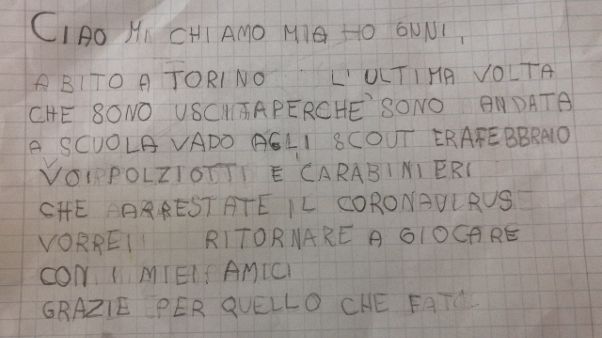 CIAO MI CHIAMO MIA HO 6NNI,
ABITO A TORINO L'ULTIMA VOLTA
CHE SONO USCITAPERCHE' SONO ANDATA
A SCUOLA VADO AGLI SCOUT ERAFEBBRAIO
VOI POLZIOTTI E CARABINIERI
CHE ARRESTATE IL CORONAVIRUS
VORREI RITORNARE A GIOCARE
CON I MIEI AMICI
GRAZIE PER QUELLO CHE